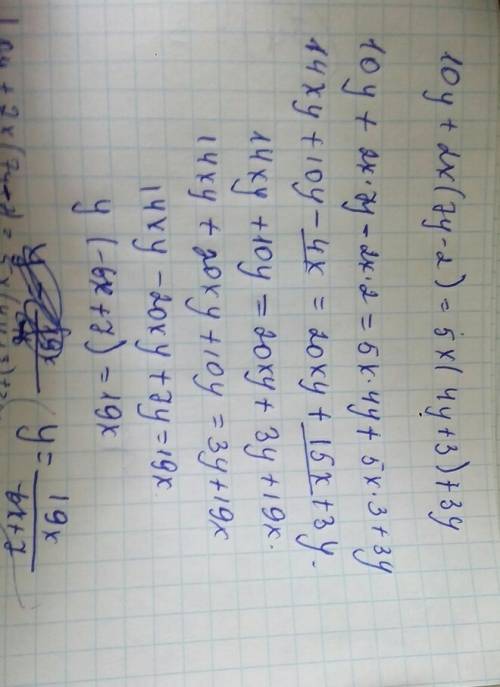 10y + 2x(7y-2) = 5x(4y+3)+3y
10y + 2x·7y-2x·2 = 5x·4y+5x·3+3y
14xy+10y-4x = 20xy+15x+3y.
14xy+10y=20xy+3y+19x.
14xy+20xy+10y=3y+19x
14xy-20xy+7y=19x
y(-6x+7)=19x
y = 19x / -6x+7